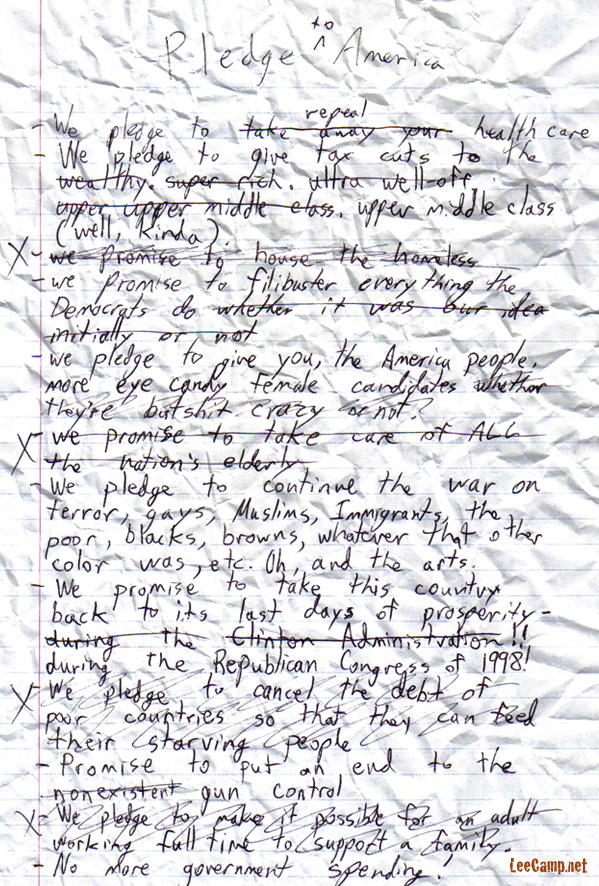 to
Pledge ^ America
repeal
- We pledge to take away your health care
- We pledge to give tax cuts to the
wealthy. super rich. ultra well-off.
upper upper middle class. upper middle class
(well, kinda)
X - we promise to house the homeless
- we promise to filibuster everything the
Democrats do whether it was our idea
initially or not
- we pledge to give you, the America people,
more eye candy female candidates whether
they're batshit crazy or not?
X - we promise to take care of ALL
the nation's elderly
- We pledge to continue the war on
terror, gays, Muslims, Immigrants, the
poor, blacks, browns, whatever that other
color was, etc. Oh, and the arts.
- We promise to take this country
back to its last days of prosperity -
during the Clinton Administration!!
during the Republican Congress of 1998!
X - We pledge to cancel the debt of
poor countries so that they can feed
their starving people
- Promise to put an end to the
nonexistent gun control
X - We pledge to make it possible for an adult
working full time to support a family.
- No more government spending.
LeeCamp.net